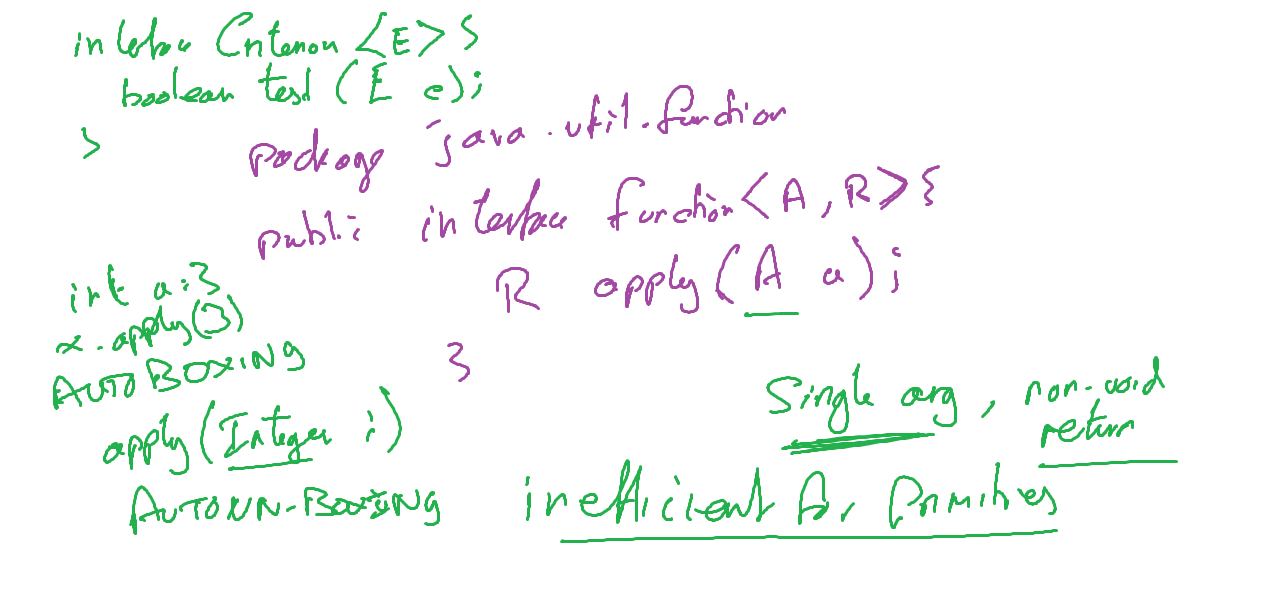 interface Criterion <E> {
boolean test (E e);
}
package java.util.function
public interface function<A, R> {
R apply(A a);
}
int a = 3
x.apply(3)
AUTOBOXING
apply(Integer i)
AUTOUN-BOXING
Single arg, non-void
return
inefficient for primitives